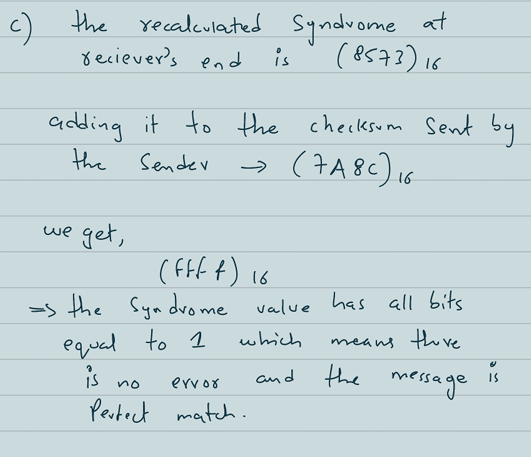 c) the recalculated Syndrome at
reciever's end is (8573)16
adding it to the checksum Sent by
the Sender → (7A8C)16
we get,
(ffff)16
⇒ the Syndrome value has all bits
equal to 1 which means there
is no error and the message is
Perfect match.